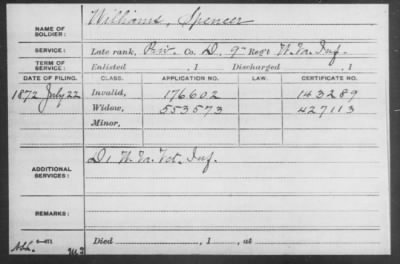 NAME OF SOLDIER: Williams, Spencer
SERVICE: Late rank, Priv. Co. D, 9" Reg't W. Va. Inf.
TERM OF SERVICE: Enlisted , 1 Discharged , 1
DATE OF FILING. CLASS. APPLICATION NO. LAW. CERTIFICATE NO.
1872 July 22 Invalid, 176602 143289
Widow, 553573 427113
Minor,
ADDITIONAL SERVICES: D, 1 W. Va. Vet. Inf.
REMARKS:
Died , 1 , at